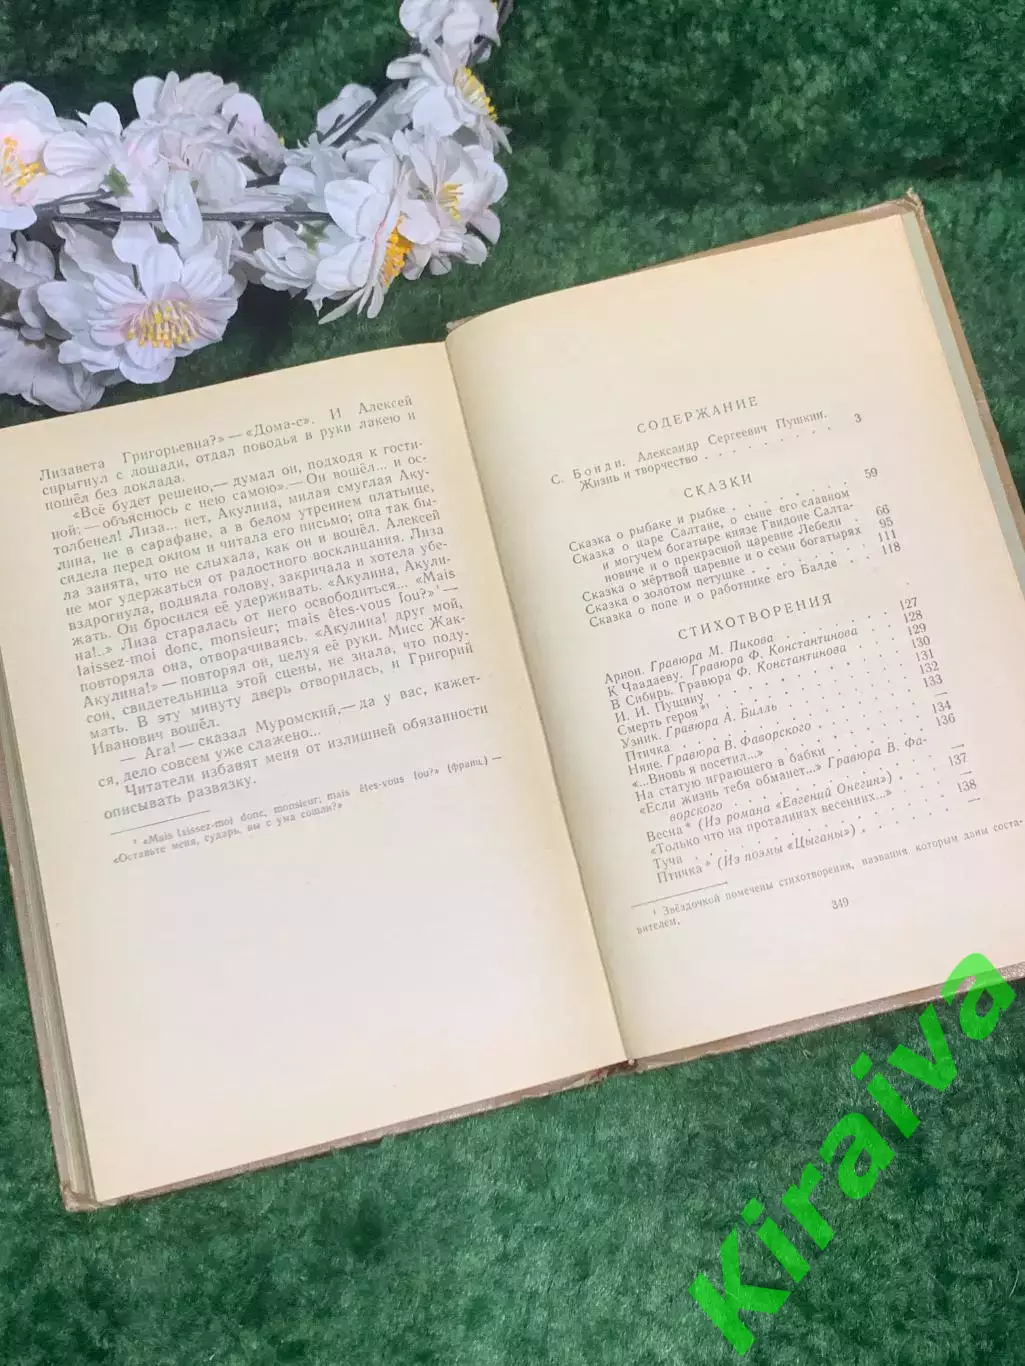 Лизавета Григорьевна?» — «Дома-с». И Алексей
спрыгнул с лошади, отдал поводья в руки лакею и
пошёл без доклада.
«Всё будет решено,— думал он, подходя к гости-
ной; — объяснюсь с нею самою».— Он вошёл... и ос-
толбенел! Лиза... нет, Акулина, милая смуглая Аку-
лина, не в сарафане, а в белом утреннем платьице,
сидела перед окном и читала его письмо; она так бы-
ла занята, что не слыхала, как он и вошёл. Алексей
не мог удержаться от радостного восклицания. Лиза
вздрогнула, подняла голову, закричала и хотела убе-
жать. Он бросился её удерживать. «Акулина, Акули-
на!..» Лиза старалась от него освободиться... «Mais
laissez-moi donc, monsieur; mais êtes-vous fou?»¹ —
повторяла она, отворачиваясь. «Акулина! друг мой,
Акулина!» — повторял он, целуя её руки. Мисс Жак-
сон, свидетельница этой сцены, не знала, что поду-
мать. В эту минуту дверь отворилась, и Григорий
Иванович вошёл.
— Ага! — сказал Муромский,— да у вас, кажет-
ся, дело совсем уже слажено...
Читатели избавят меня от излишней обязанности
описывать развязку.
¹ «Mais laissez-moi donc, monsieur; mais êtes-vous fou?» (франц.) —
«Оставьте меня, сударь, вы с ума сошли?»
СОДЕРЖАНИЕ
С. Бонди. Александр Сергеевич Пушкин.
Жизнь и творчество . . . . . . . . 3
СКАЗКИ
Сказка о рыбаке и рыбке . . . . . . 59
Сказка о царе Салтане, о сыне его славном
и могучем богатыре князе Гвидоне Салта-
новиче и о прекрасной царевне Лебеди . 66
Сказка о мёртвой царевне и о семи богатырях 95
Сказка о золотом петушке . . . . . 111
Сказка о попе и о работнике его Балде . . 118
СТИХОТВОРЕНИЯ
Арион. Гравюра М. Пикова . . . . . 127
К Чаадаеву. Гравюра Ф. Константинова . 128
В Сибирь. Гравюра Ф. Константинова . . 129
И. И. Пущину . . . . . . . . 130
Смерть героя*¹ . . . . . . . . 131
Узник. Гравюра А. Билль . . . . . 132
Птичка . . . . . . . . . 133
Няне. Гравюра В. Фаворского . . . . —
«...Вновь я посетил...» . . . . . . 134
На статую играющего в бабки . . . . 136
«Если жизнь тебя обманет...» Гравюра В. Фа-
ворского . . . . . . . . —
Весна* (Из романа «Евгений Онегин») . . 137
«Только что на проталинах весенних...» . —
Туча . . . . . . . . . 138
Птичка* (Из поэмы «Цыганы») . . . . —
¹ Звёздочкой помечены стихотворения, названия которым даны соста-
вителем.
349
Kiraiva